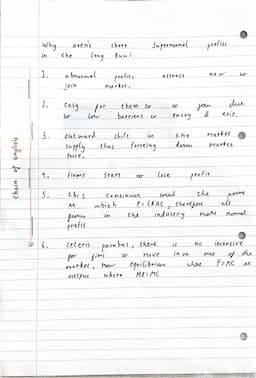 Why aren't there supernormal profits
in the long run:
1. abnormal profits attract new to
join market.
2. Easy for them to join due
to low barriers to entry & exit.
3. outward shift in the market
supply thus forceing down market
price.
4. firms start to lose profit
5. this continues until the point
at which P=LRAC, therefore all
firms in the industry make normal
profit
6. ceteris parabus, there is no incensive
for firms to move in or out of the
market, new equilibrium where P=AC at
output where MR=MC
Chain of analysis